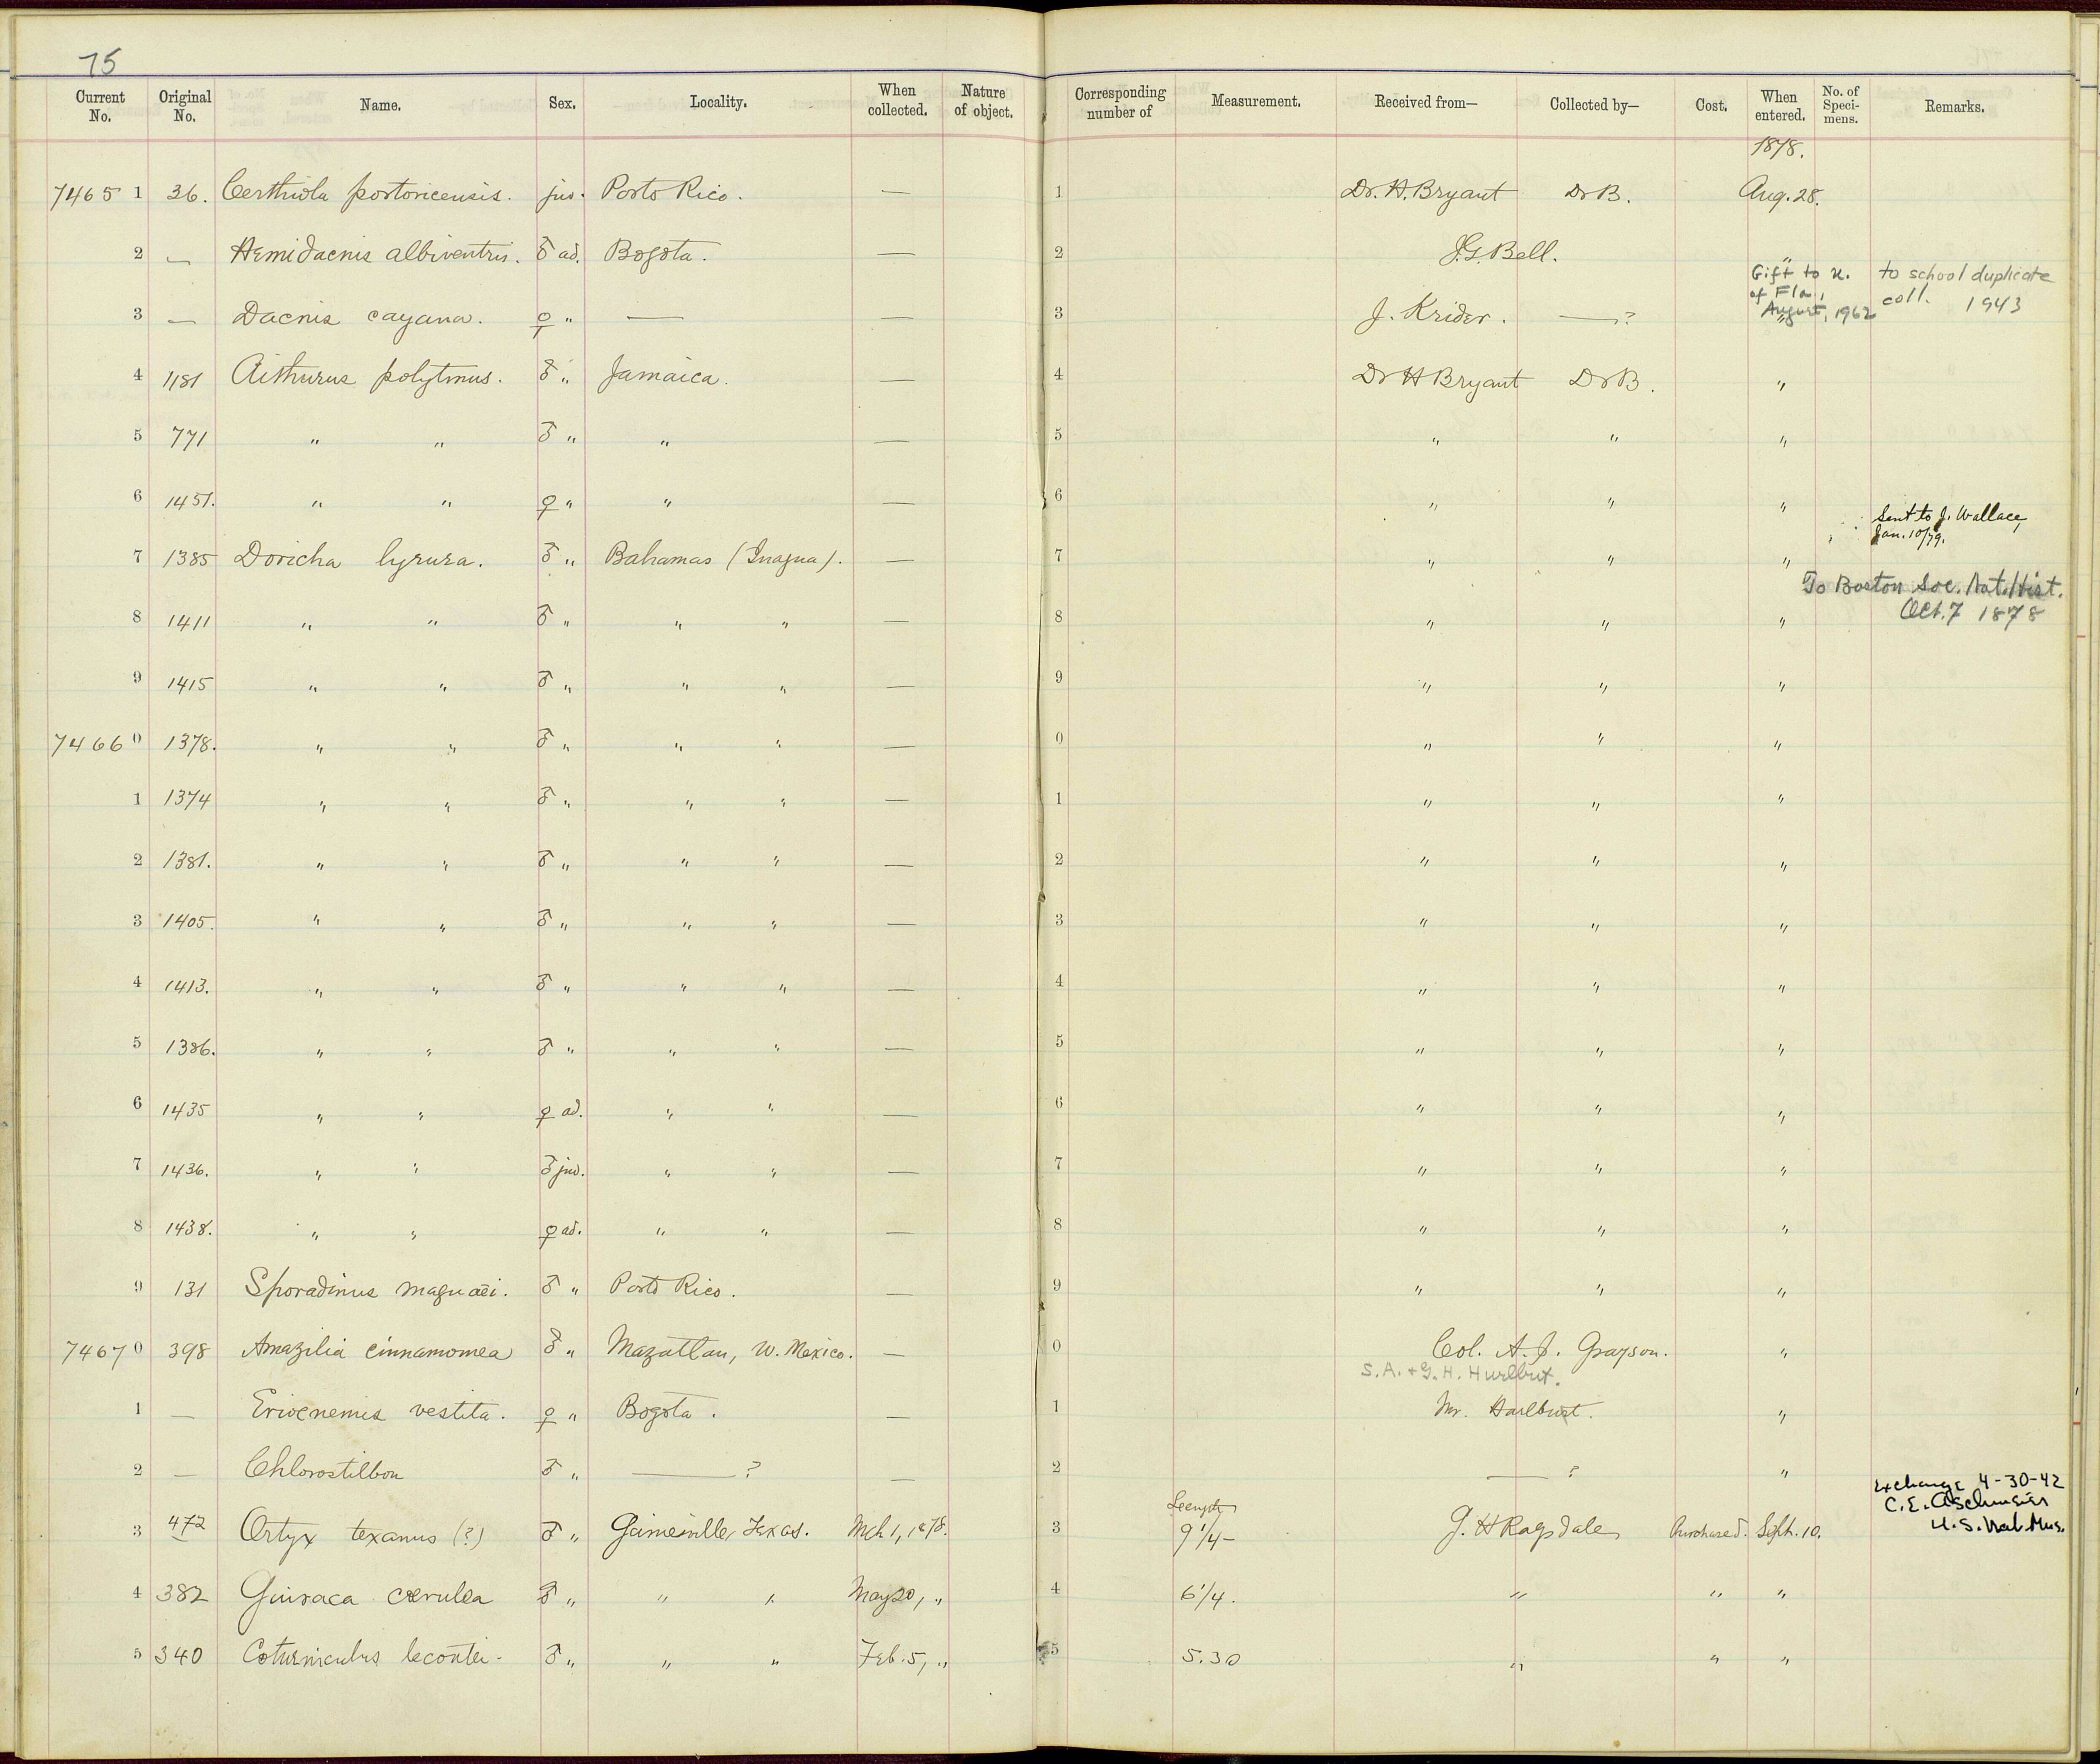 75
Current No. Original No. Name. Sex. Locality. When collected. Nature of object. Corresponding number of Measurement. Received from— Collected by— Cost. When entered. No. of Speci-mens. Remarks.
1878.
7465 1 36. Certhiola portoricensis. juv. Porto Rico. — 1 Dr. H. Bryant Dr B. Aug. 28.
2 — Hemidacnis albiventris. ♂ ad. Bogota. — 2 J.G. Bell. "
Gift to U. of Fla., August, 1962 to school duplicate coll. 1943
3 — Dacnis cayana. ♀ " — — 3 J. Krider. —? "
4 1181 Aithurus polytmus. ♂ " Jamaica. — 4 Dr H Bryant Dr B. "
5 771 " " ♂ " " — 5 " " "
6 1451. " " ♀ " " — 6 " " "
Sent to J. Wallace, Jan. 10/79.
7 1385 Doricha lyrura. ♂ " Bahamas (Inagua). — 7 " " "
To Boston Soc. Nat. Hist. Oct. 7 1878
8 1411 " " ♂ " " " — 8 " " "
9 1415 " " ♂ " " " — 9 " " "
7466 0 1378. " " ♂ " " " — 0 " " "
1 1374 " " ♂ " " " — 1 " " "
2 1381. " " ♂ " " " — 2 " " "
3 1405. " " ♂ " " " — 3 " " "
4 1413. " " ♂ " " " — 4 " " "
5 1386. " " ♂ " " " — 5 " " "
6 1435 " " ♀ ad. " " — 6 " " "
7 1436. " " ♂ juv. " " — 7 " " "
8 1438. " " ♀ ad. " " — 8 " " "
9 131 Sporadinus maguaei. ♂ " Porto Rico. — 9 " " "
7467 0 398 Amazilia cinnamomea ♂ " Mazatlan, W. Mexico. — 0 Col. A. J. Grayson. "
S. A. + G. H. Hurlbut.
1 — Eriocnemis vestita. ♀ " Bogota. — 1 Mr. Harlburt. "
2 — Chlorostilbon ♂ " —? — 2 —? "
Exchange 4-30-42 C. E. Aschmeier U. S. Nat. Mus.
Length
3 472 Ortyx texanus (?) ♂ " Gainesville, Texas. Mch 1, 1878. 3 9 1/4 - G. H Ragsdale Purchased. Sept. 10.
4 382 Guiraca cærulea ♂ " " " May 20, " 4 6 1/4. " " "
5 340 Coturniculus lecontei. ♂ " " " Feb. 5, " 5 5.30 " " "